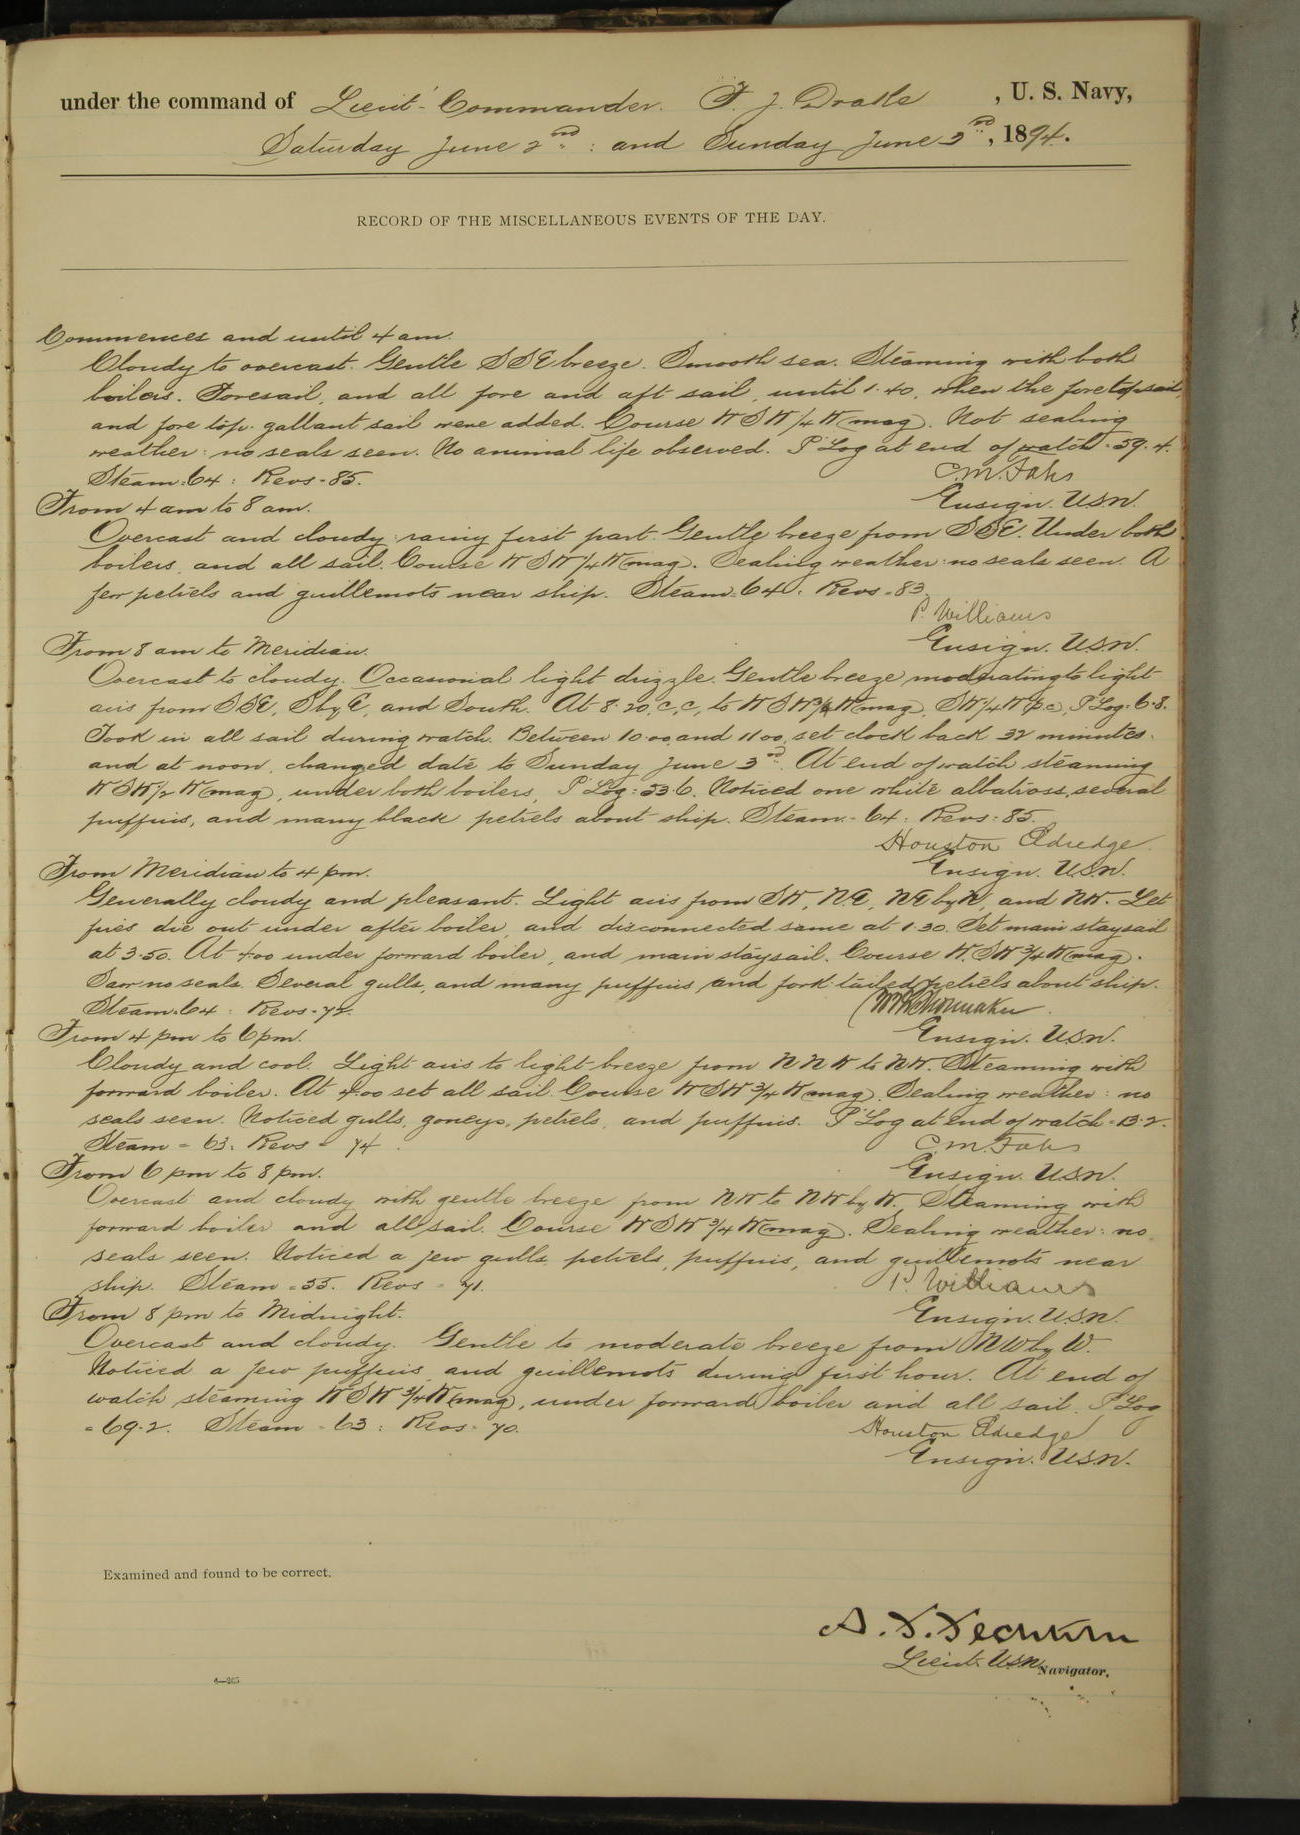 under the command of Lieut-Commander. F. J. Drake, U. S. Navy,
Saturday June 2nd: and Sunday June 3rd, 1894.
RECORD OF THE MISCELLANEOUS EVENTS OF THE DAY.
Commences and until 4 am.
Cloudy to overcast. Gentle SSE breeze. Smooth sea. Steaming with both
boilers. Foresail, and all fore and aft sail, until 1.40, when the fore topsail,
and fore top-gallant sail were added. Course WSW 1/4 W (mag). Not sealing
weather: no seals seen. No animal life observed. P Log at end of watch - 59.4.
Steam - 64: Revs - 85. C. M. Fahs
Ensign. USN.
From 4 am to 8 am.
Overcast and cloudy: rainy first part. Gentle breeze from SSE. Under both
boilers, and all sail. Course WSW 1/4 W (mag). Sealing weather: no seals seen. A
few petrels and guillemots near ship. Steam - 64. Revs - 83.
P. Williams
Ensign. USN.
From 8 am to Meridian.
Overcast to cloudy. Occasional light drizzle. Gentle breeze moderating to light
airs from SSE, S by E, and South. At 8.20, c,c, to WSW 3/4 W (mag), SW 1/4 W (p.c), P Log: 6.8.
Took in all sail during watch. Between 10.00, and 11.00, set clock back 32 minutes.
and at noon, changed date to Sunday June 3rd. At end of watch steaming
WSW 1/2 W (mag), under both boilers, P Log: 33.6. Noticed one white albatross, several
puffins, and many black petrels about ship. Steam - 64: Revs - 85.
Houston Eldredge.
Ensign. USN.
From Meridian to 4 pm.
Generally cloudy and pleasant. Light airs from SW, NE, NE by N, and NW. Let
fires die out under after boiler, and disconnected same at 1.30. Set main staysail
at 3.50. At 4.00 under forward boiler, and main staysail. Course W.SW 3/4 W (mag).
Saw no seals. Several gulls, and many puffins, and fork tailed petrels about ship.
Steam - 64: Revs - 72.
Ensign. USN.
From 4 pm to 6 pm.
Cloudy and cool. Light airs to light breeze from NNW to NW. Steaming with
forward boiler. At 4.00 set all sail. Course WSW 3/4 W (mag). Sealing weather: no
seals seen. Noticed gulls, goneys, petrels, and puffins. P Log at end of watch - 13.2.
Steam = 63. Revs = 74. C. M. Fahs
Ensign. USN.
From 6 pm to 8 pm.
Overcast and cloudy with gentle breeze from NW to NW by W. Steaming with
forward boiler and all sail. Course WSW 3/4 W (mag). Sealing weather: no
seals seen. Noticed a few gulls, petrels, puffins, and guillemots near
ship. Steam = 55. Revs = 71. P. Williams
Ensign. U.S.N.
From 8 pm to Midnight.
Overcast and cloudy. Gentle to moderate breeze from NW by W.
Noticed a few puffins and guillemots during first hour. At end of
watch steaming WSW 3/4 W (mag), under forward boiler and all sail. P Log
= 69.2. Steam - 63: Revs - 70. Houston Eldredge
Ensign. USN.
Examined and found to be correct.
Lieut. USN, Navigator.